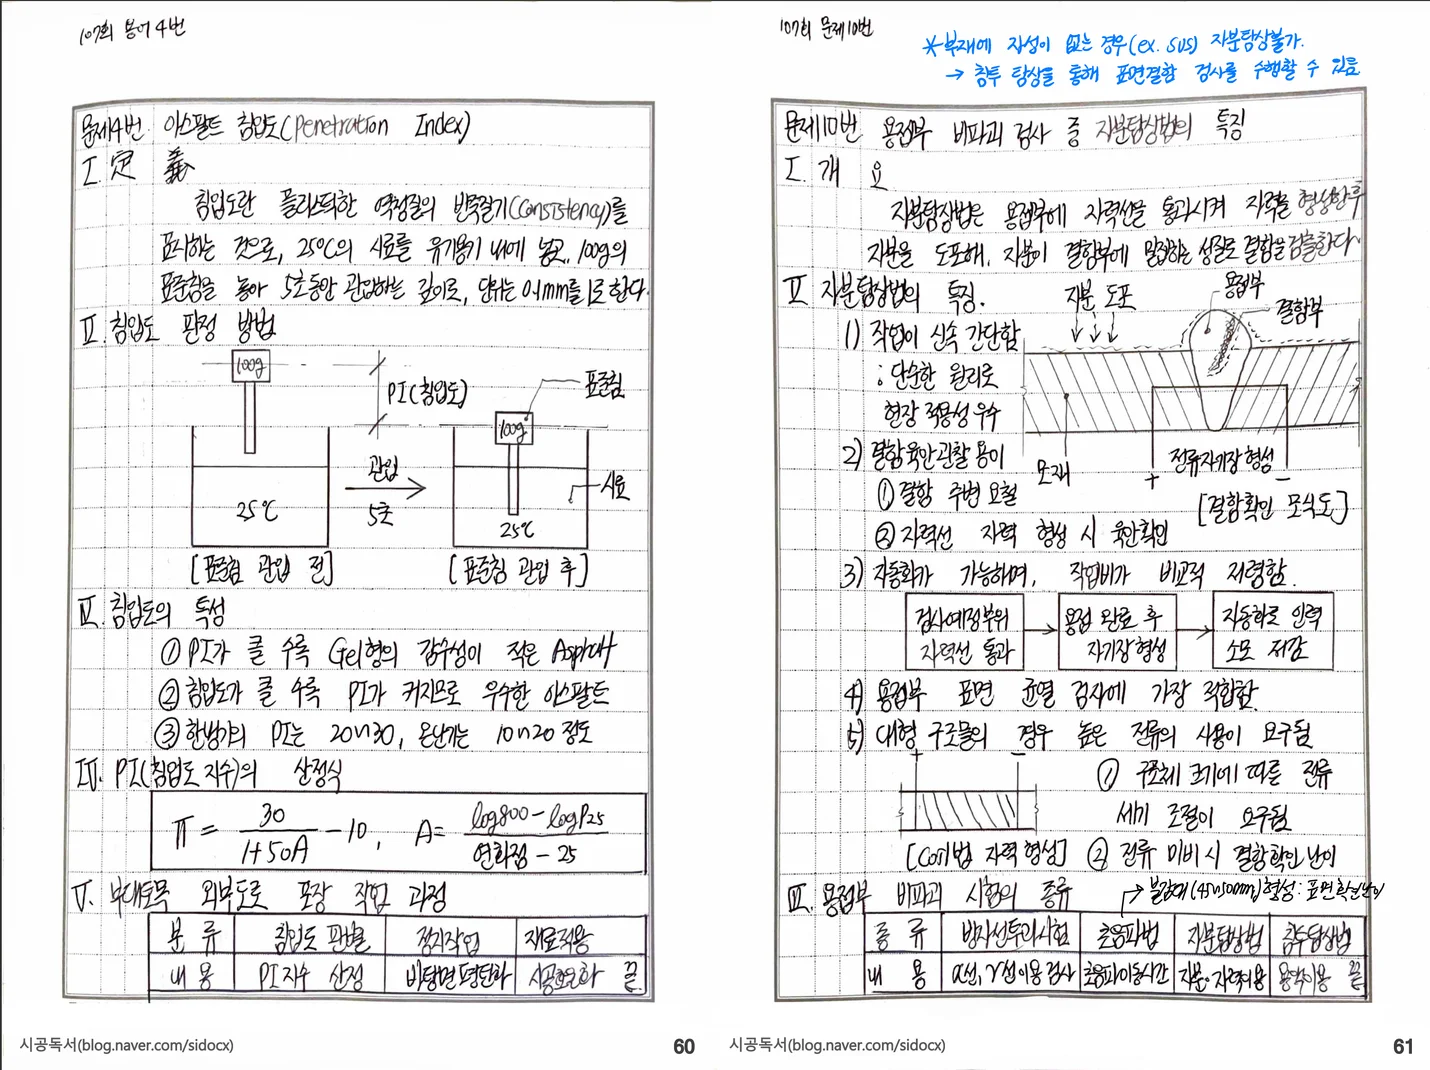 107회 용어 4번
문제4번. 아스팔트 침입도(Penetration Index)
I. 定 義
침입도란 플라스틱한 역청질의 반죽질기(Consistency)를
표시하는 것으로, 25℃의 시료를 유기용기 내에 넣고, 100g의
표준침을 놓아 5초동안 관입하는 깊이로, 단위는 0.1mm를 1로 한다.
II. 침입도 판정 방법
100g
PI(침입도)
표준침
100g
관입
5초
시료
25℃
25℃
[표준침 관입 전]
[표준침 관입 후]
III. 침입도의 특성
① PI가 클 수록 Gel형의 감수성이 적은 Asphalt
② 침입도가 클 수록 PI가 커지므로 우수한 아스팔트
③ 한냉기의 PI는 20~30, 온난기는 10~20 정도
IV. PI(침입도 지수)의 산정식
PI = 30/(1+50A) - 10, A = (log800 - logP25)/(연화점 - 25)
V. 부대토목 외부도로 포장 작업 과정
분 류 침입도 판별 정지작업 재료적용
내 용 PI지수 산정 바탕면 평탄화 시공효율화 끝.
시공독서(blog.naver.com/sidocx)
60
107회 문제10번
*부재에 자성이 없는 경우(ex. SUS) 자분탐상불가.
→ 침투 탐상을 통해 표면결함 검사를 수행할 수 있음
문제10번 용접부 비파괴 검사 중 자분탐상법의 특징
I. 개 요
자분탐상법은 용접부에 자력선을 통과시켜 자력을 형성한후
자분을 도포해, 자분이 결함부에 밀집하는 성질로 결함을 검출한다.
II. 자분탐상법의 특징.
자분 도포
용접부
결함부
1) 작업이 신속 간단함
: 단순한 원리로
현장 적용성 우수
2) 결함육안관찰 용이
모재
전류자기장 형성
+
-
① 결함 주변 요철
[결함확인 모식도]
② 자력선 자력 형성 시 육안확인
3) 자동화가 가능하며, 작업비가 비교적 저렴함.
검사예정부위 자력선 통과
→
용접 완료 후 자기장 형성
→
자동화로 인력 소모 저감
4) 용접부 표면 균열 검사에 가장 적합함.
5) 대형 구조물의 경우 높은 전류의 사용이 요구됨
+
-
① 구조체 크기에 따른 전류
세기 조절이 요구됨
[Coil법 자력 형성]
② 전류 미비 시 결함확인 난이
III. 용접부 비파괴 시험의 종류
→ 불감대(45~50mm)형성: 표면확인난이
종 류 방사선투과시험 초음파법 자분탐상법 침투탐상법
내 용 α선, γ선 이용 검사 초음파이동시간 자분·자력이용 용착이용 끝.
시공독서(blog.naver.com/sidocx)
61